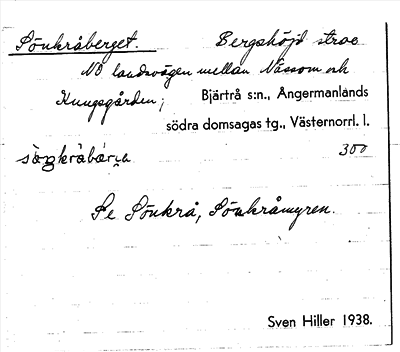 Sönkråberget. Bergshöjd strax
NO landsvägen mellan Nässom och
Kungsgården; Bjärtrå s:n., Ångermanlands
södra domsagas tg., Västernorrl. l.
300
Se Sönkrå, Sönkråmyren.
Sven Hiller 1938.